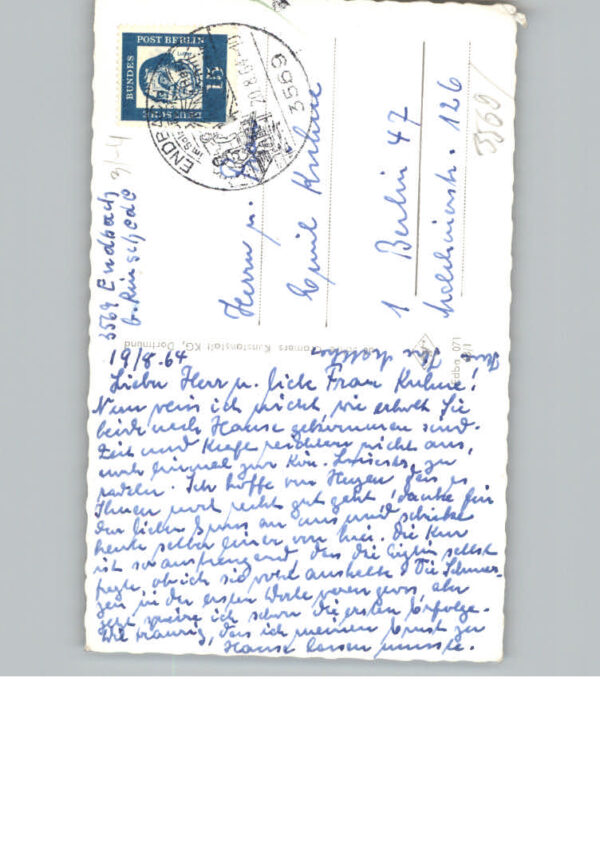 DEUTSCHE
BUNDES
POST BERLIN
15
ENDBACH
20.8.64
3569
3569 Endbach
Herrn u. Frau
Emil Kuhne
1 Berlin 47
126
3569
Cramers Kunstanstalt KG, Dortmund
19/8.64
Lieber Herr u. liebe Frau Kuhne!
Nun weis ich nicht, wie erholt Sie
beide nach Hause gekommen sind.
Zeit und Kräfte reichten nicht aus,
noch einmal zur Kon. zu
radeln. Ich hoffe von Herzen das es
Ihnen noch recht gut geht, danke für
den lieben Gruss an uns und schicke
heute selber einen von hier. Die Kur
ist so anstrengend das die selbst
fragte, ob ich sie wohl aushalte. Die Schmer-
zen in der ersten Woche waren gross, aber
jetzt spüre ich schon die ersten Erfolge.
Wie traurig, das ich meinen zu
Hause lassen musste.